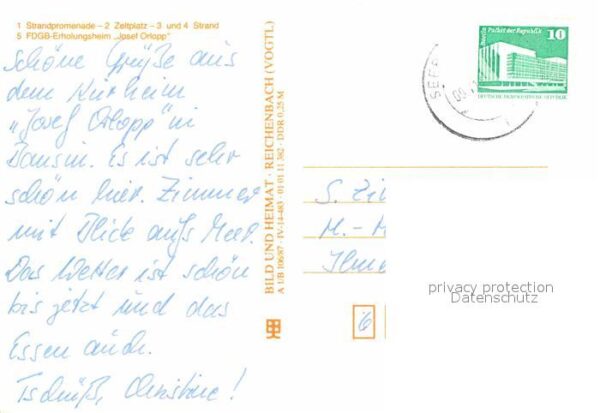 1 Strandpromenade – 2 Zeltplatz – 3 und 4 Strand
5 FDGB-Erholungsheim „Josef Orlopp"
Schöne Grüße aus
dem Kurheim
„Josef Orlopp" in
Bansin. Es ist sehr
schön hier. Zimmer
mit Blick aufs Meer.
Das Wetter ist schön
bis jetzt und das
Essen auch.
Tschüß, Christine!
BILD UND HEIMAT · REICHENBACH (VOGTL)
A 1/B 106/87 · IV-14-483 · 01 01 11 362 · DDR 0,25 M
Berlin, Palast der Republik
10
DEUTSCHE DEMOKRATISCHE REPUBLIK
SEEB
S. Zi
M.-
Ilme
6
privacy protection
Datenschutz